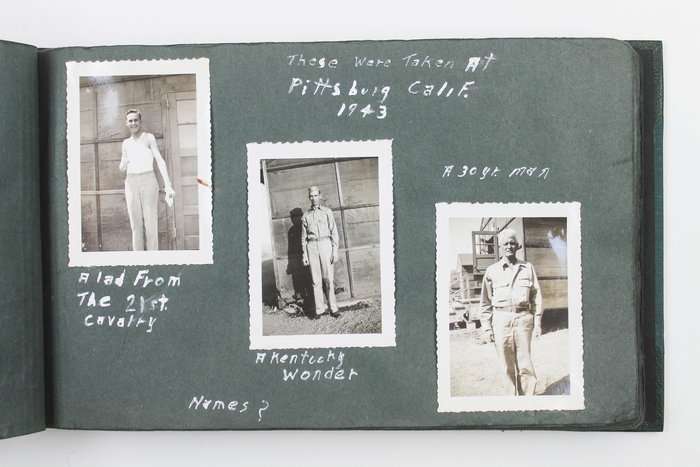 These Were Taken At
Pittsburg Calif.
1943
A 30 yr. man
A lad From
The 21st.
Cavalry
A Kentucky
Wonder
Names?